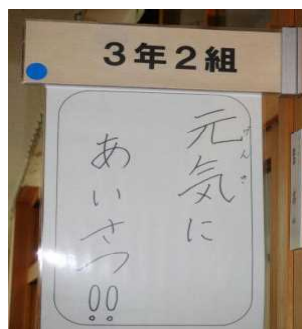 3年2組
元気に
げんき
あいさつ!!